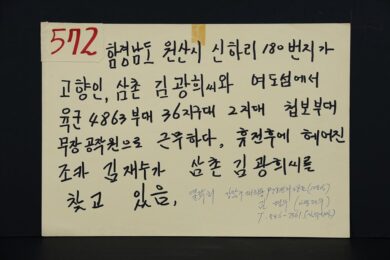 572
함경남도 원산시 신하리 180번지가
고향인, 삼촌 김광희씨와 여도섬에서
육군 4863부대 36지구대 2지대 첩보부대
무장공작원으로 근무하다, 휴전후에 헤어진
조카 김재수가 삼촌 김광희씨를
찾고 있음,
연락처